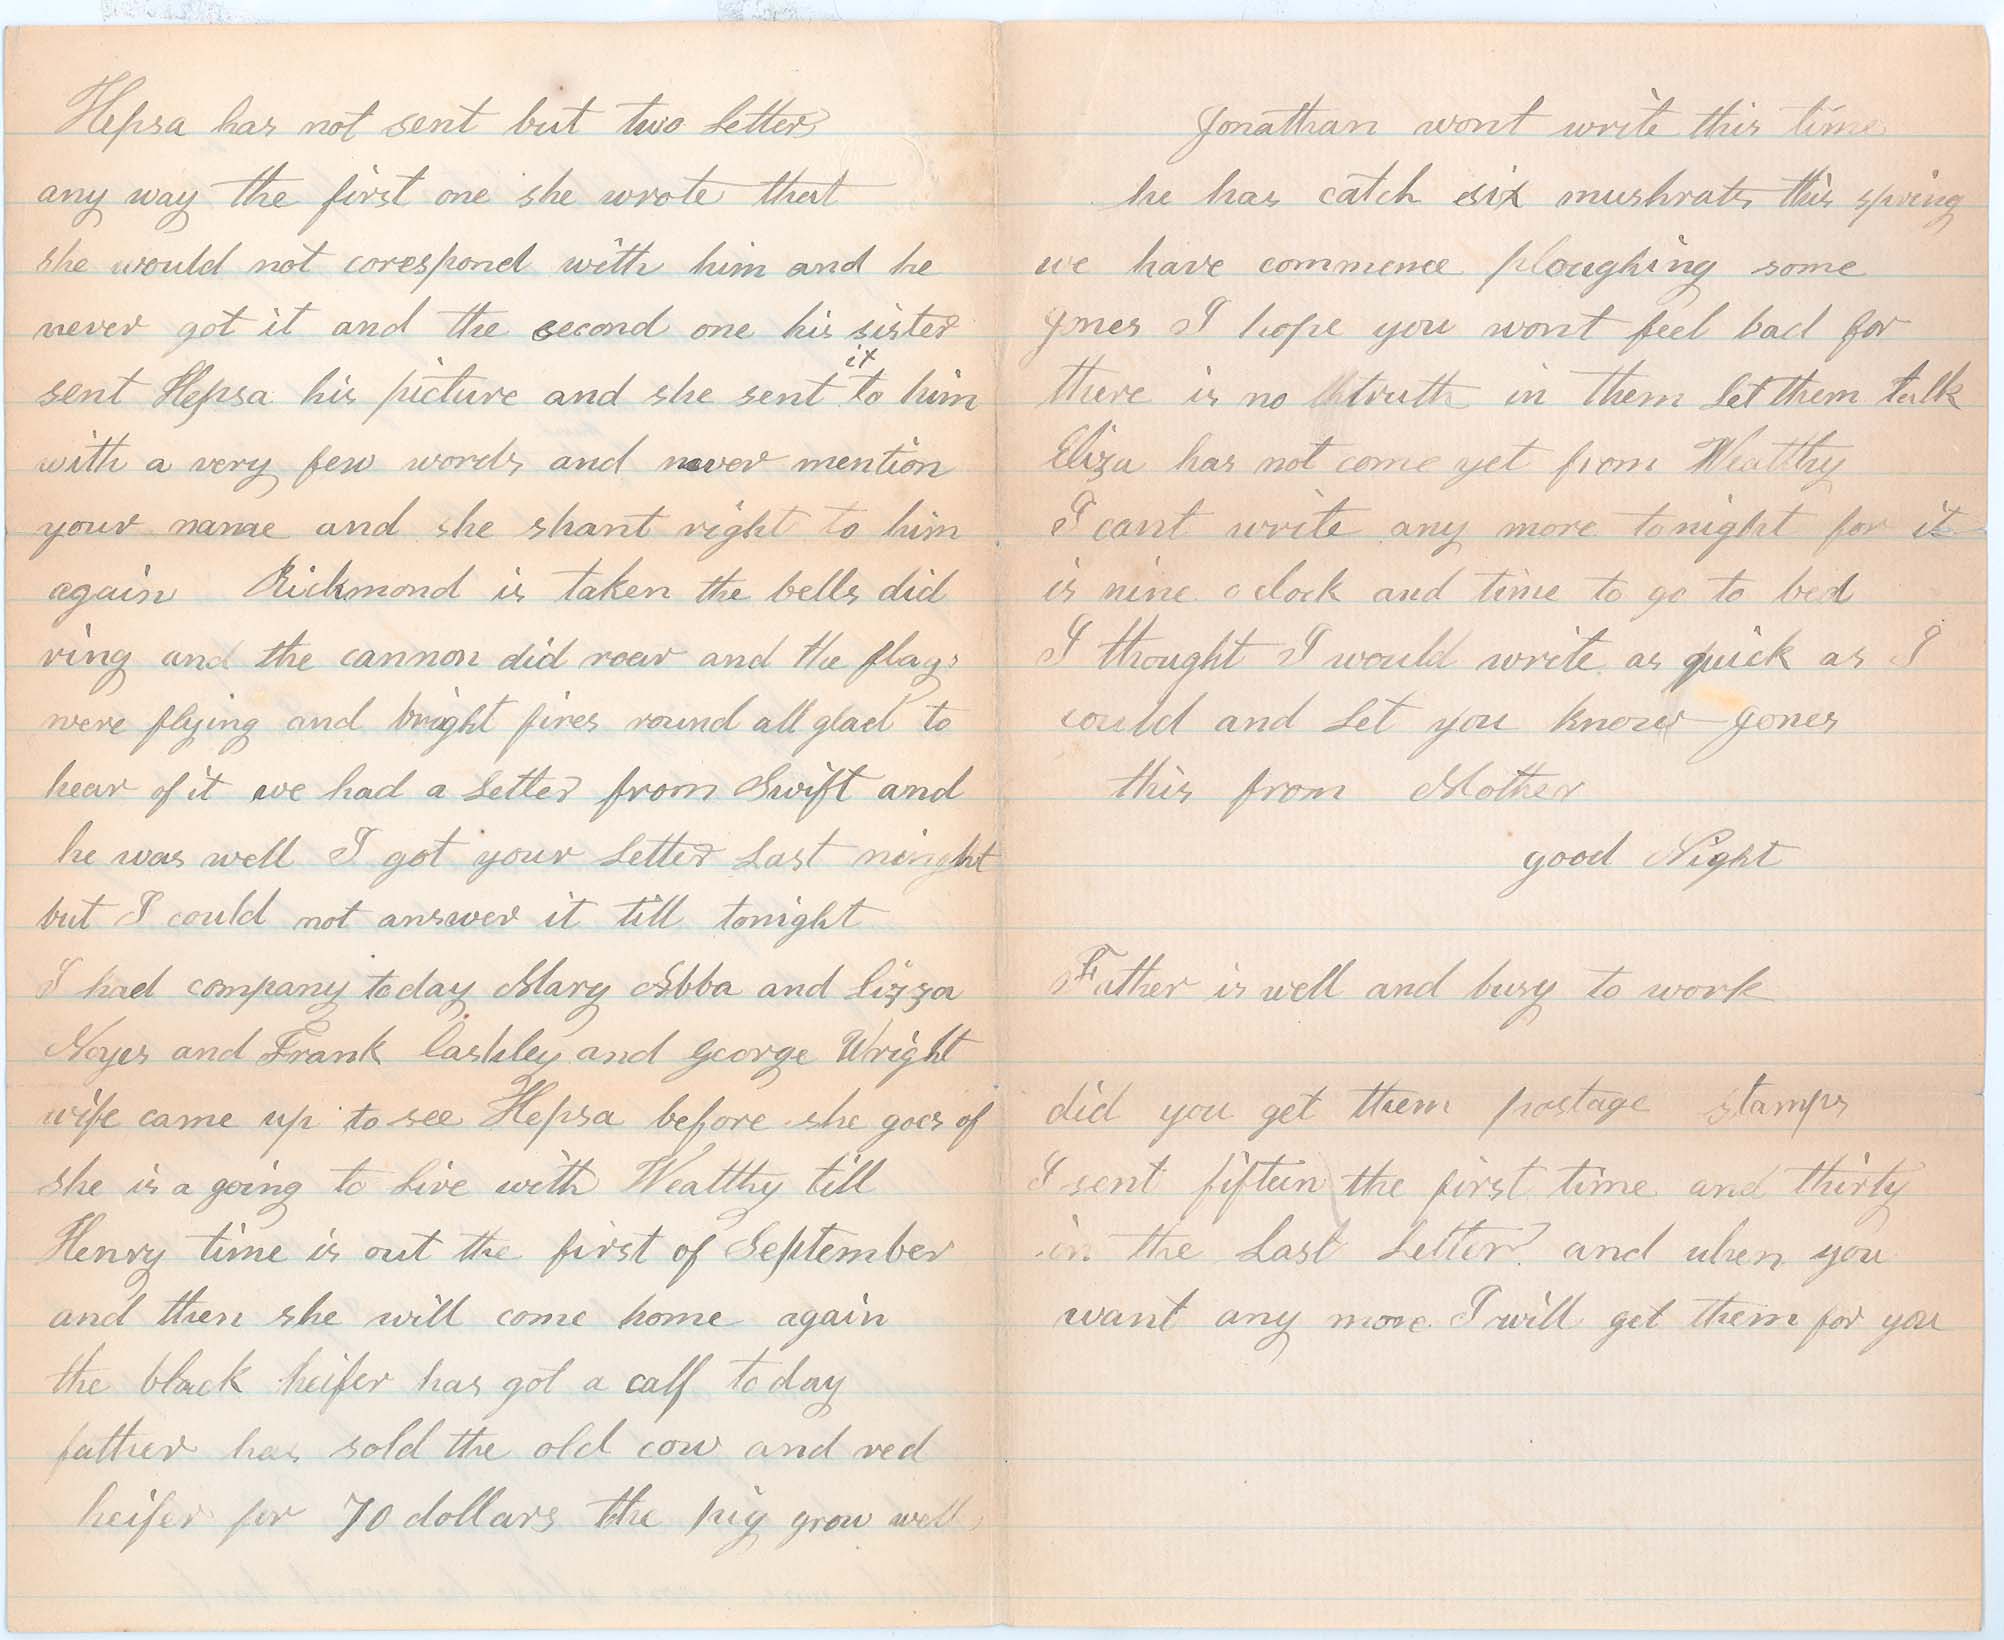 Hepsa has not sent but two Letter
any way the first one she wrote that
she would not corespond with him and he
never got it and the second one his sister
sent Hepsa his picture and she sent it to him
with a very few words and never mention
your name and she shant right to him
again Rickmond is taken the bells did
ring and the cannon did roar and the flags
were flying and bright fires round all glad to
hear of it we had a Letter from Swift and
he was well I got your Letter Last ninght
but I could not answer it till tonight
I had company today Mary Abba and Lizza
Noyes and Frank Cashley and George Wright
wife came up to see Hepsa before she goes of
she is a going to Live with Wealthy till
Henry time is out the first of September
and then she will come home again
the black heifer has got a calf to day
father has sold the old cow and red
heifer for 70 dollars the pig grow well
Jonathan wont write this time
he has catch six mushrats this spring
we have commence ploughing some
Jones I hope you wont feel bad for
there is no truth in them Let them talk
Eliza has not come yet from Wealthy
I cant write any more tonight for it
is nine o clock and time to go to bed
I thought I would write as quick as I
could and Let you know Jones
this from Mother
good Night
Father is well and busy to work
did you get them postage stamps
I sent fifteen the first time and thirty
in the Last Letter and when you
want any more I will get them for you